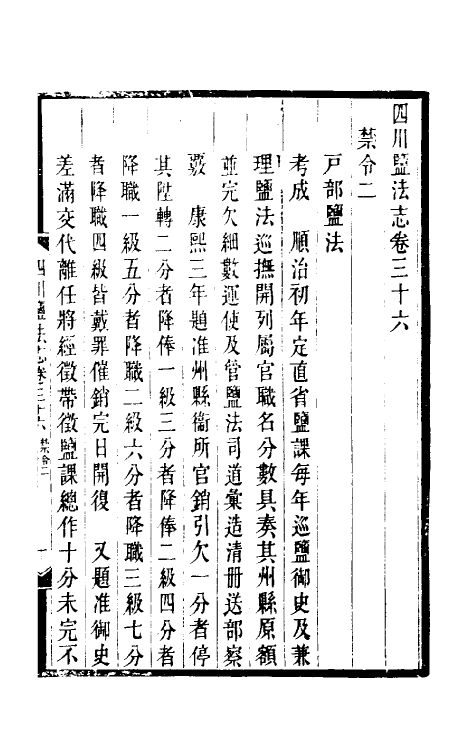 四川鹽法志卷三十六
禁令二
戶部鹽法
考成　順治初年定直省鹽課每年巡鹽御史及兼
理鹽法巡撫開列屬官職名分數具奏其州縣原額
並完欠細數運使及管鹽法司道彙造清冊送部察
覈　康熙三年題准州縣衞所官銷引欠一分者停
其陞轉二分者降俸一級三分者降俸二級四分者
降職一級五分者降職二級六分者降職三級七分
者降職四級皆戴罪催銷完日開復　又題准御史
差滿交代離任將經徵帶徵鹽課總作十分未完不
四川鹽法志卷三十六　禁令二　一